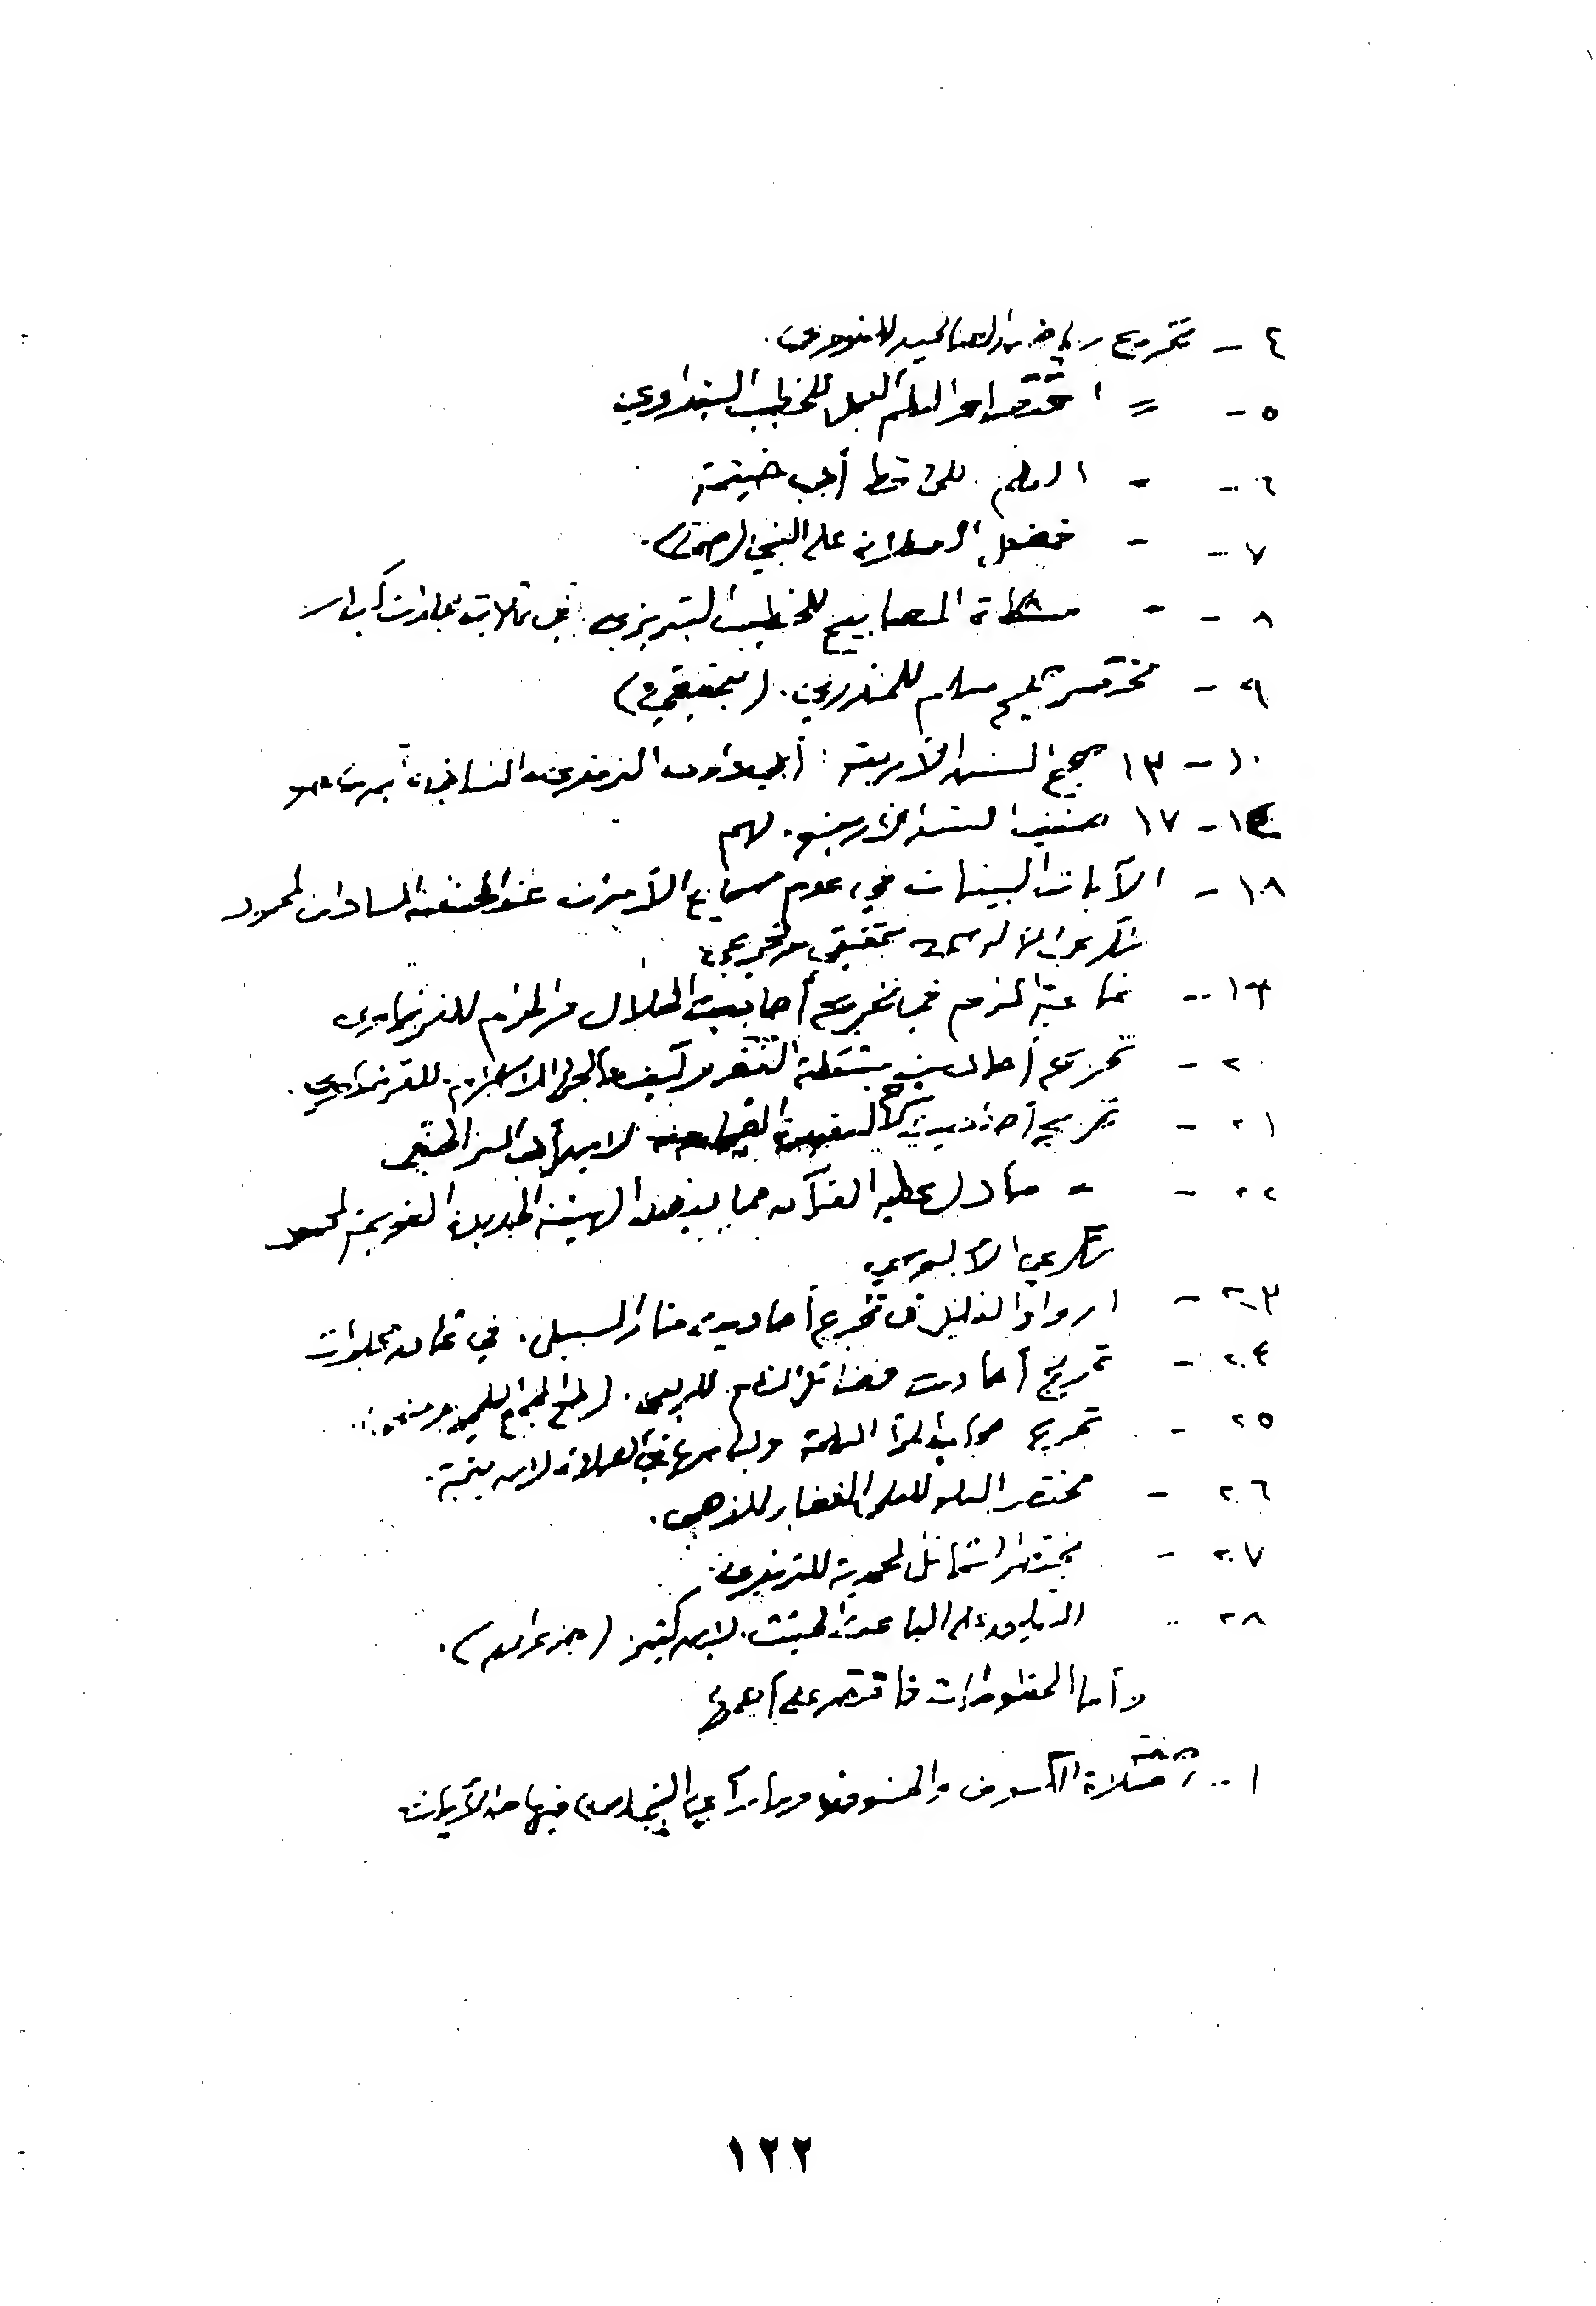 ٤ - تخريج رياض الصالحين للنووي.
٥ - = اقتضاء العلم العمل للخطيب البغدادي
٦ - - العلم للحافظ أبي خيثمة
٧ - - فضل الصلاة على النبي
٨ - - مشكاة المصابيح للخطيب التبريزي. في ثلاث مجلدات كبار
٩ - مختصر صحيح مسلم للمنذري. (بتحقيقي)
١٠ - ١٣ صحيح السنن الأربعة: أبي داود الترمذي والنسائي وابن ماجه
١٤ - ١٧ ضعيف السنن الأربعة. لهم
١٨ - الآيات البينات في عدم سماع الأموات عند الحنفية السادات لمحمود
شكري الألوسي بتحقيقي وتخريجي
١٩ - غاية المرام في تخريج أحاديث الحلال والحرام للقرضاوي
٢٠ - تخريج أحاديث مشكلة الفقر وكيف عالجها الإسلام. للقرضاوي.
٢١ - تخريج أحاديث كتاب العقيدة الطحاوية لابن أبي العز الحنفي
٢٢ - - ما دل عليه القرآن مما يعضد الهيئة الجديدة القويمة لمحمود
شكري الألوسي
٢٣ - ارواء الغليل في تخريج أحاديث منار السبيل. في ثمان مجلدات
٢٤ - تخريج أحاديث فضائل الشام للربعي.
٢٥ - تخريج حجاب المرأة المسلمة ولباسها في الصلاة لابن تيمية.
٢٦ - مختصر العلو للعلي الغفار للذهبي.
٢٧ - مختصر الشمائل المحمدية للترمذي
٢٨ - الباعث الحثيث. لابن كثير
وأما المخطوطات فأقتصر على أهمها
١ - صلاة الكسوف والخسوف وما رأى النبي فيها من الآيات
١٢٢